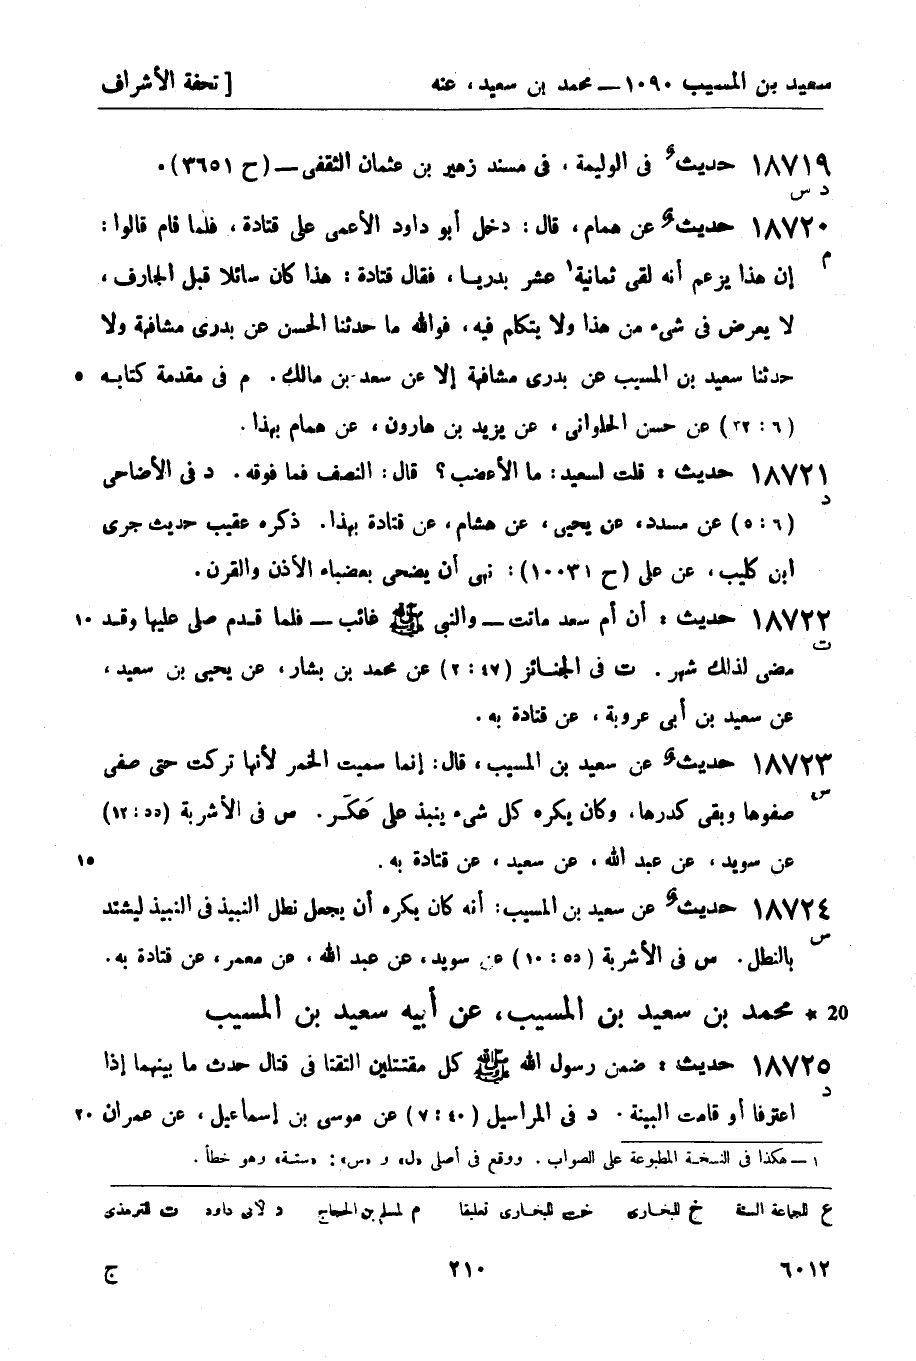 سعيد بن المسيب ١٠٩٠ــ محمد بن سعيد، عنه [ تحفة الأشراف
١٨٧١٩ حديث فى الوليمة ، فى مسند زهير بن عثمان الثقفى ــ (ح ٣٦٥١).
د س
١٨٧٢٠ حديث عن همام، قال: دخل أبو داود الأعمى على قتادة ، فلما قام قالوا:
م
إن هذا يزعم أنه لقى ثمانية١ عشر بدريا ، فقال قتادة : هذا كان سائلا قبل الجارف ،
لا يعرض فى شىء من هذا ولا يتكلم فيه، فوالله ما حدثنا الحسن عن بدرى مشافهة ولا
حدثنا سعيد بن المسيب عن بدرى مشافهة إلا عن سعد بن مالك. م فى مقدمة كتابه ٥
(٦ : ٢٢) عن حسن الحلوانى ، عن يزيد بن هارون ، عن همام بهذا .
١٨٧٢١ حديث : قلت لسعيد: ما الأعضب؟ قال: النصف فما فوقه. د فى الأضاحى
د
(٦ : ٥) عن مسدد، عن يحيى، عن هشام، عن قتادة بهذا. ذكره عقيب حديث جرى
ابن كليب، عن على (ح ١٠٠٣١): نهى أن يضحى بعضباء الأذن والقرن.
١٨٧٢٢ حديث : أن أم سعد ماتت ــ والنبى ﷺ غائب ــ فلما قدم صلى عليها وقد ١٠
ت
مضى لذلك شهر . ت فى الجنائز (٤٧ : ٢) عن محمد بن بشار، عن يحيى بن سعيد ،
عن سعيد بن أبى عروبة ، عن قتادة به .
١٨٧٢٣ حديث عن سعيد بن المسيب ، قال: إنما سميت الخمر لأنها تركت حتى صفى
س
صفوها وبقى كدرها، وكان يكره كل شىء ينبذ على عَكَر. س فى الأشربة (٥٥ : ١٢)
عن سويد ، عن عبد الله ، عن سعيد ، عن قتادة به . ١٥
١٨٧٢٤ حديث عن سعيد بن المسيب: أنه كان يكره أن يجعل نطل النبيذ فى النبيذ ليشتد
س
بالنطل. س فى الأشربة (٥٥ : ١٠) عن سويد، عن عبد الله ، عن معمر، عن قتادة به.
20 * محمد بن سعيد بن المسيب، عن أبيه سعيد بن المسيب
١٨٧٢٥ حديث : ضمن رسول الله ﷺ كل مقتتلين التقتا فى قتال حدث ما بينهما إذا
د
اعترفا أو قامت البينة . د فى المراسيل (٤٠ : ٧) عن موسى بن إسماعيل ، عن عمران ٢٠
١ ــ هكذا فى النسخة المطبوعة على الصواب . ووقع فى أصلى «ل» و «س»: «ستة» وهو خطأ .
ع للجماعة الستة خ للبخارى خت للبخارى تعليقا م لمسلم بن الحجاج د لأبى داود ت للترمذى
٦٠١٢ ٢١٠ ج